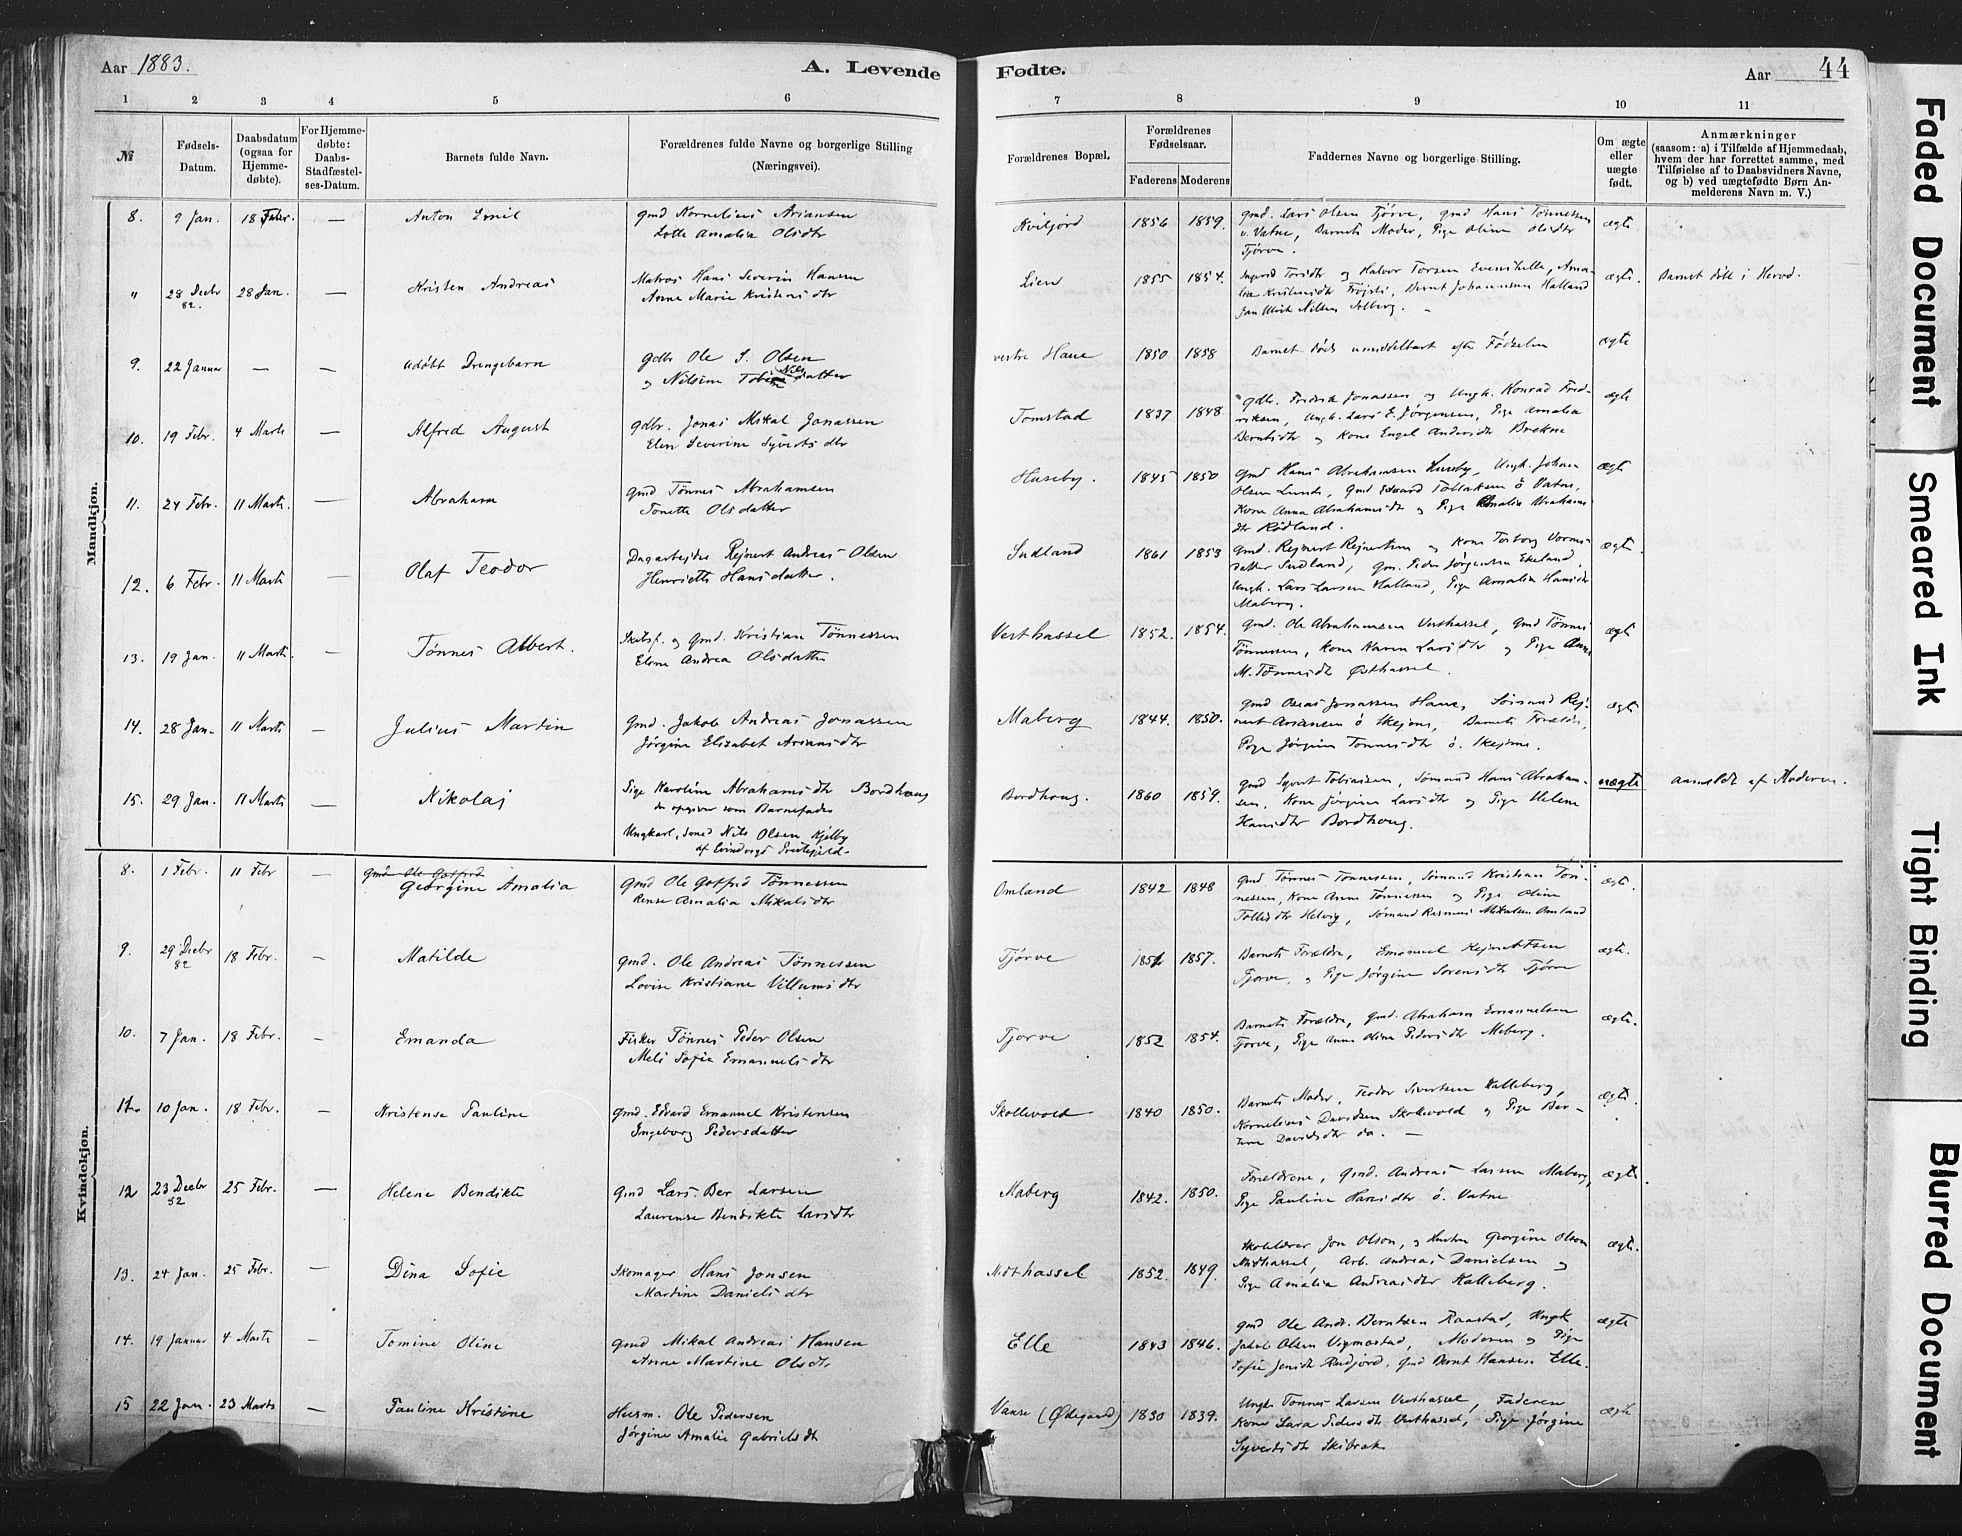 Aar 1883.
A. Levende
Fødte.
Aar 44
1 2 3 4 5 6
7 8 9 10 11
№
Fødsels-
Datum.
Daabsdatum
(ogsaa for
Hjemme-
døbte).
For Hjemme-
døbte:
Daabs-
Stadfæstel-
ses-Datum.
Barnets fulde Navn.
Forældrenes fulde Navne og borgerlige Stilling
(Næringsvei).
Forældrenes Bopæl.
Forældrenes
Fødselsaar.
Faderens
Moderens
Faddernes Navne og borgerlige Stilling.
Om ægte
eller
uægte
født.
Anmærkninger
(saasom: a) i Tilfælde af Hjemmedaab,
hvem der har forrettet samme, med
Tilføielse af to Daabsvidners Navne,
og b) ved uægtefødte Børn An-
melderens Navn m. V.)
Mandkjøn.
8. 9 Jan. 18 Febr. — Anton Emil
Gmd Kornelius Ariansen
Lotte Amalia Olsdtr
Kviljord 1856 1859.
Gmd. Lars Olsen Tjörve, Gmd Hans Tönnessen
v. Vatne, Barnets Moder, Pige Oline Olsdtr
Tjörve.
ægte
" 28 Decbr 28 Jan. — Kristen Andreas
82.
Matros Hans Severin Hansen
Anne Marie Kristensdtr
Lien 1855 1854.
Ingerid Torsdtr og Halvor Torsen Evenstelle, Ama-
lia Kristensdtr, Bernt Johannesen Halland
Jan Ulrik Nilsen Solberg.
ægte.
Barnet döbt i Herod.
9. 22 Januar — — Udöbt Drengebarn
Gdbr Ole S. Olsen
og Nilsine Nilsdatter
vestre Haue 1850 1858
Barnet döde umiddelbart efter Födselen
ægte
10. 19 Febr. 4 Marts — Alfred August
Gdbr. Jonas Mikal Jonassen
Elen Severine Syvertsdtr
Tomstad 1837 1848
Gdbr. Fredrik Jonassen og Ungk. Konrad Fred-
riksen, Ungk. Lars E. Jörgensen, Pige Amalia
Berntsdtr og Kone Engel Andersdtr Brekne
ægte
11. 24 Febr. 11 Marts. — Abraham
Gmd Tönnes Abrahamsen
Tonette Olsdatter
Huseby. 1845 1850
Gmd Hans Abrahamsen Huseby, Ungk. Johan
Olsen Lunde, Gmd Edvard Tollaksen ö Vatne,
Kone Anna Abrahamsdtr og Pige Amalia Abrahams
dtr Rödland.
ægte
12. 6 Febr. 11 Marts — Olaf Teodor
Dagarbejder Rejnert Andreas Olsen
Henriette Hansdatter.
Sudland 1861 1853
Gmd. Rejnert Rejnertsen og Kone Torborg Vorms-
datter Sudland, Gm. Peder Jörgensen Ekeland,
Ungk. Lars Larsen Halland, Pige Amalia Hansdtr
Maberg.
ægte.
13. 19 Jan. 11 Marts. — Tönnes Albert.
Skibsf. og Gmd. Kristian Tönnessen
Elene Andrea Olsdatter
Vesthassel 1852. 1854.
Gmd. Ole Abrahamsen Vesthassel, Gmd Tönnes
Tönnessen, Kone Karen Larsdtr og Pige Anne
M. Tönnesdtr Östhassel.
ægte
14. 28 Jan. 11 Marts — Julius Martin
Gmd. Jakob Andreas Jonassen
Jörgine Elisabet Ariansdtr
Maberg 1844. 1850.
Gmd Oseas Jonassen Haue, Sömand Rej-
nert Ariansen ö Skejme, Barnets Forældre,
Pige Jörgine Tönnesdtr ö. Skejme.
ægte
15. 29 Jan. 11 Marts — Nikolaj
Pige Karoline Abrahamsdtr Bordhoug
der opgiver som Barnefader
Ungkarl, Sömd Nils Olsen Kjelby
af Præstegjeld.
Bordhoug. 1860 1859.
Gmd Syvert Tobiassen, Sömand Hans Abraham-
sen, Kone Jörgine Larsdtr og Pige Helene
Hansdtr Bordhoug.
uægte
anmeldt af Moderen.
Kvindekjøn.
8. 1 Febr. 11 Febr — Gmd Ole Gotfred
Georgine Amalia
Gmd Ole Gotfred Tönnessen
Rense Amalia Mikalsdtr
Omland 1842 1848
Gmd. Tönnes Tönnessen, Sömand Kristian Tön-
nessen, Kone Anne Tönnessen og Pige Oline
Tollisdtr Helvig, Sömand Rasmus Mikalsen Omland
ægte.
9. 29 Decbr 18 Febr. — Matilde
82
Gmd. Ole Andreas Tönnessen
Lovise Kristiane Villumsdtr
Tjörve 1852 1857.
Barnets Forældre, Emanuel Rejnertsen
Tjörve, og Pige Jörgine Sorensdtr Tjörve
ægte.
10. 7 Jan. 18 Febr. — Emanda
Fisker Tönnes Peder Olsen
Meli Sofie Emanuelsdtr
Tjorve 1852 1854.
Barnets Forældre, Gmd. Abraham Emanuelsen
Tjorve, Pige Anne Oline Pedersdtr Meberg.
ægte.
11. 10 Jan. 18 Febr. — Kristense Pauline
Gmd. Edvard Emanuel Kristensen
Ingeborg Pedersdatter
Skollevold 1840 1850.
Barnets Moder, Teodor Sivertsen Kalleberg,
Kornelius Davidsen Skollevold og Pige Ber-
tine Davidsdtr do. —
ægte.
12 23 Decbr 25 Febr. — Helene Bendikte
82
Gmd Lars Ber Larsen
Laurense Bendikte Larsdtr
Maberg 1842. 1850.
Forældrene, Gmd. Andreas Larsen Maberg,
Pige Pauline Hansdtr ö. Vatne
ægte.
13. 24 Jan. 25 Febr. — Dina Sofie
Skomager Hans Jonsen
Martine Danielsdtr
Midthassel 1852. 1849.
Skolelærer Jon Olson, og Hustru Georgine Olson
Midthassel, Arb. Andreas Danielsen og
Pige Amalia Andreasdtr Kalleberg.
ægte.
14. 19 Januar 4 Marts — Tomine Oline
Gmd Mikal Andreas Hansen
Anne Martine Olsdtr
Elle 1843 1846.
Gmd Ole Andr. Berntsen Raastad, Ungk
Jakob Olsen Vigmostad, Moderen og Pige
Sofie Jensdtr Rudjord, Gmd Bernt Hansen Elle.
ægte
15 22 Jan. 23 Marts — Pauline Kristine
Husm. Ole Pedersen
Jörgine Amalie Gabrielsdtr
Vanse (Ødegaard) 1830 1839.
Ungk Tönnes Larsen Vesthassel, Faderen
Kone Sara Pedersdtr Vesthassel, Pige Jörgine
Syvertsdtr Skibrak
ægte
Faded Document
Smeared Ink
Tight Binding
Blurred Document